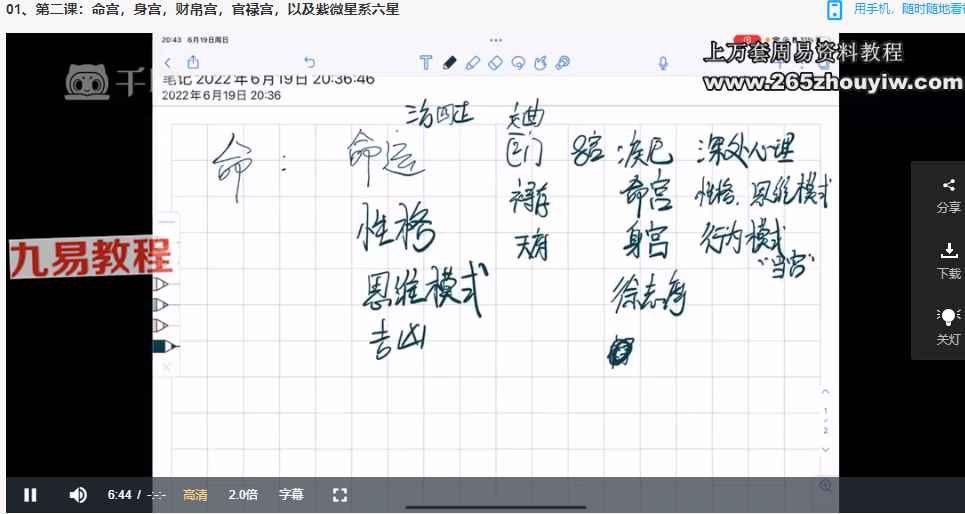 01、第二课：命宫，身宫，财帛宫，官禄宫，以及紫微星系六星
用手机，随时随地看
20:43 6月19日周日
上万套周易资料教程
www.265zhouyiw.com
笔记 2022年6月19日 20:36:46
2022年6月19日 20:36
命：命运
性格
思维模式
吉凶
巨门
禄存
天府
疾厄 深处心理
命宫 性格、思维模式
身宫 行为模式
徐志摩
九易教程
分享
下载
关灯
1
2
6:44 / --:--
高清
2.0倍
字幕